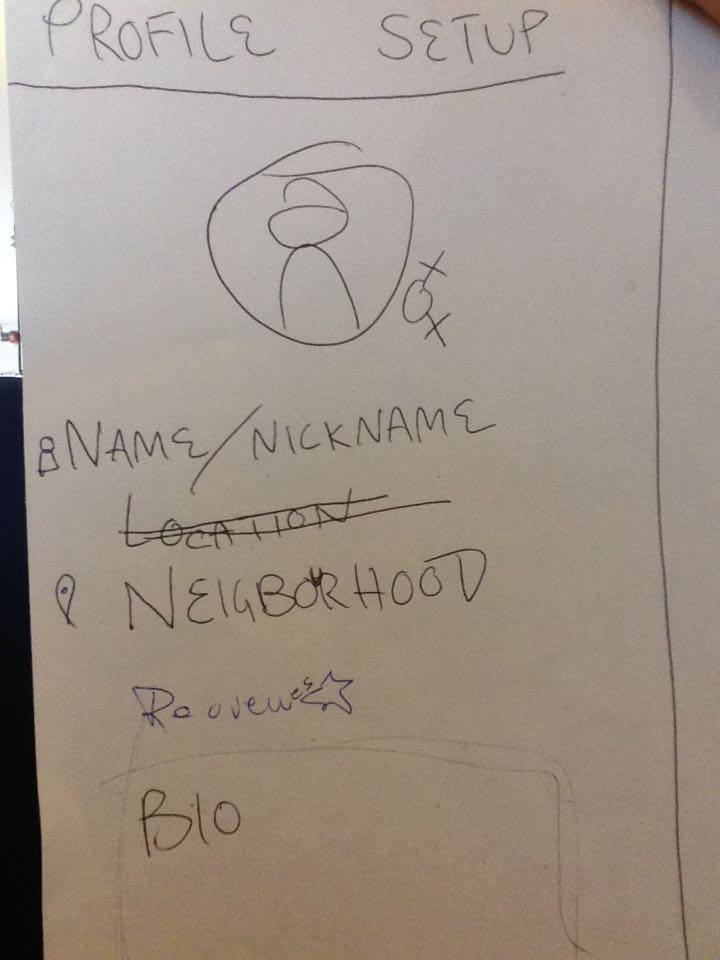 PROFILE SETUP
NAME/NICKNAME
LOCATION
NEIGBORHOOD
BIO